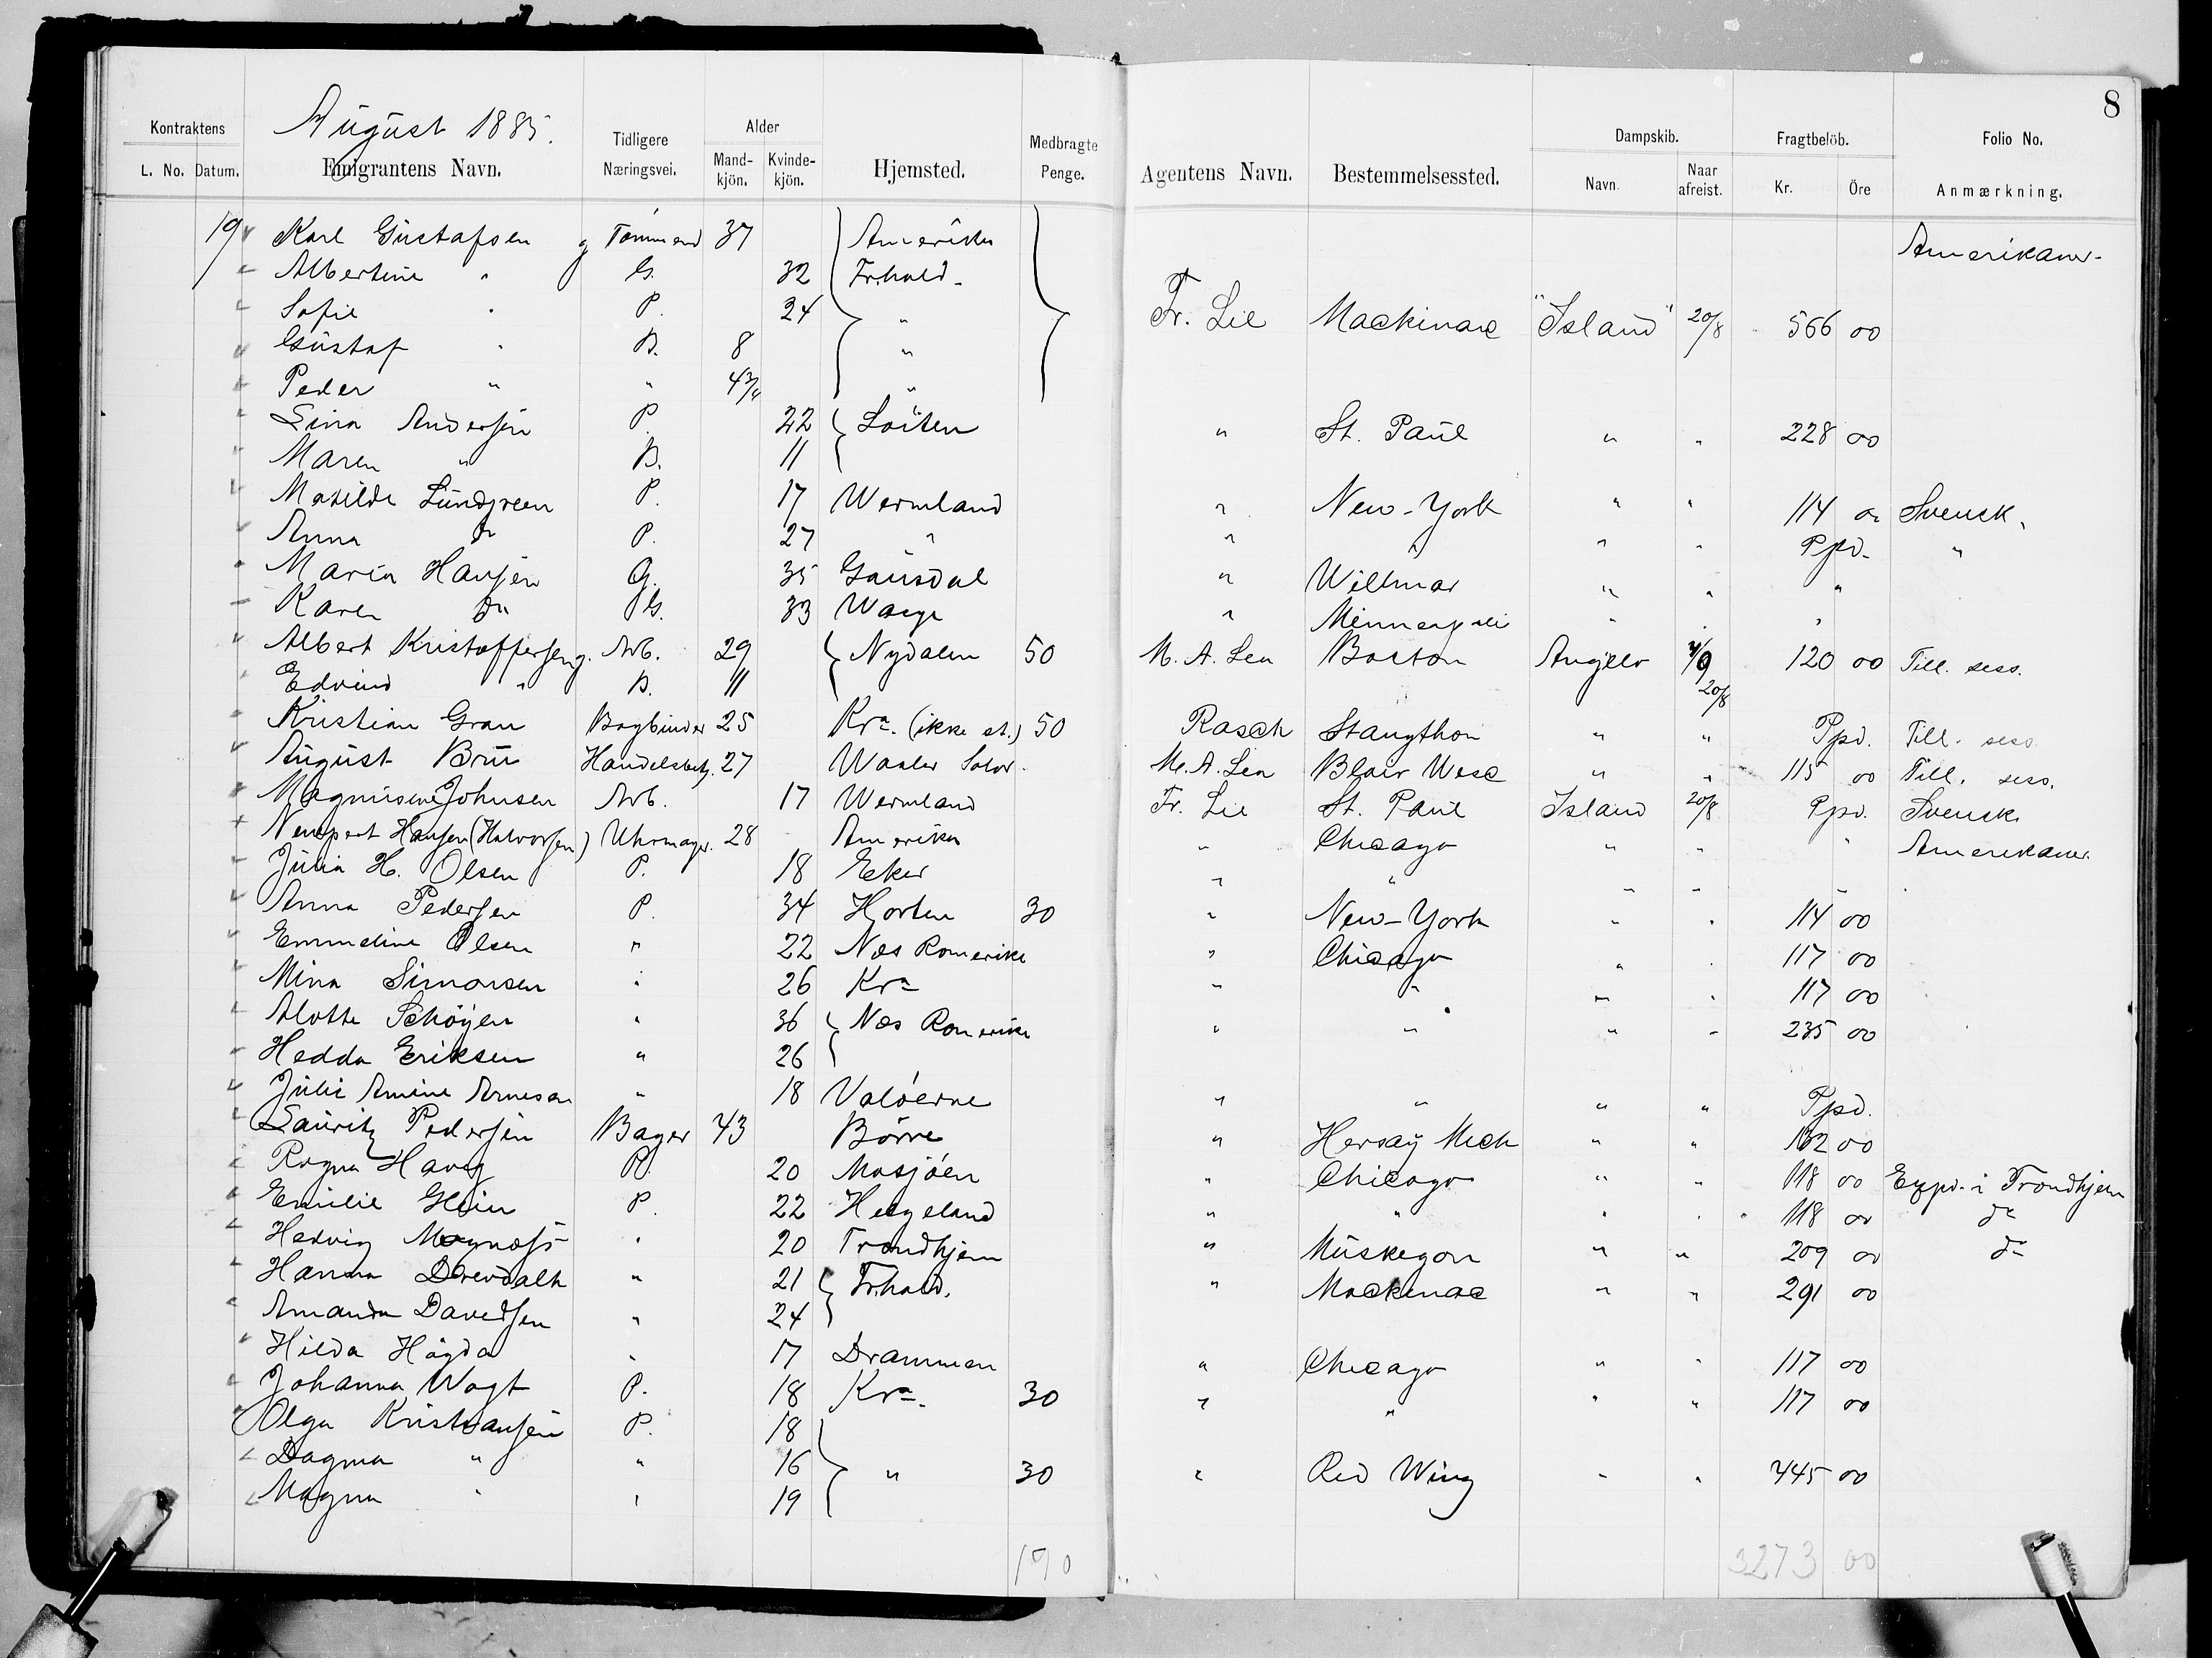 8
August 1885.
Kontraktens L. No. Datum. Emigrantens Navn. Tidligere Næringsvei. Alder Mand-kjön. Kvinde-kjön. Hjemsted. Medbragte Penge. Agentens Navn. Bestemmelsessted. Dampskib. Navn. Naar afreist. Fragtbelöb. Kr. Öre Folio No. Anmærkning.
19 Karl Gustafsen g Tømmerd 37 Amerika Amerikaner.
Albertine " G. 32 Fr.hald.
Sofie " P. 24 " Fr. Lie Mackinac "Island" 20/8 566 00
Gustaf " B. 8 "
Peder " " 4 "
Lina Andersen P. 22 Löiten " St. Paul " " 228 00
Maren " B. 11
Matilde Lundgreen P. 17 Wermland " New-York " " 114 00 Svensk.
Anna do P. 27 " " " " " Ppd. "
Maria Hansen G. 35 Gausdal " Willmar " " "
Karen do G. 33 " " " "
Albert Kristoffersen g. Arb. 29 Nydalen 50 M. A. Lea Boston Angelo 120 00 Till. sess.
Edvind " B. 11 20/8
Kristian Gran Bogbinder 25 Kra. (ikke st.) 50 Rasch Stougthon " " Ppd. Till. sess.
August Bru Handelsbetj. 27 Waaler Solør. M. A. Lea Blair Wesc " " 115 00 Till. sess.
Magnusine Johnsen Arb. 17 Wermland Fr. Lie St. Paul Island 20/8 Ppd. Svensk.
Hansen (Halvorsen) Uhrmager. 28 Amerika " Chicago " " " Amerikaner.
Julia H. Olsen P. 18 Eker " " " " "
Anna Pedersen P. 34 Horten 30 " New-York " " 114 00
Emmeline Olsen " 22 Næs Romerike " Chicago " " 117 00
Mina Simonsen " 26 Kra " " " " 117 00
Alotte Schöyen " 36 Næs Romerike " " " " 235 00
Hedda Eriksen " 26
Julie Amine Arnesen " 18 Valöerne " " " " Ppd.
Lauritz Pedersen Bager 43 Börre " Hersey Mich " " 162 00
Ragna Haug P. 20 Mosjöen " Chicago " " 118 00 Expd. i Trondhjem
Emilie Hein P. 22 Helgeland " " " " 118 00 do
Hedvig " 20 Trondhjem " Muskegon " " 209 00 do
Hanna " 21 Fr.hald. " Mackinac " " 291 00
Amanda Davidsen " 24
Hilda Högda " 17 Drammen " Chicago " " 117 00
Johanna Vogt P. 18 Kra. 30 " " " " 117 00
Olga Kristiansen P. 18
Dagma " " 16 " 30 " Red Wing " " 445 00
Magna " " 19
190 3273 00